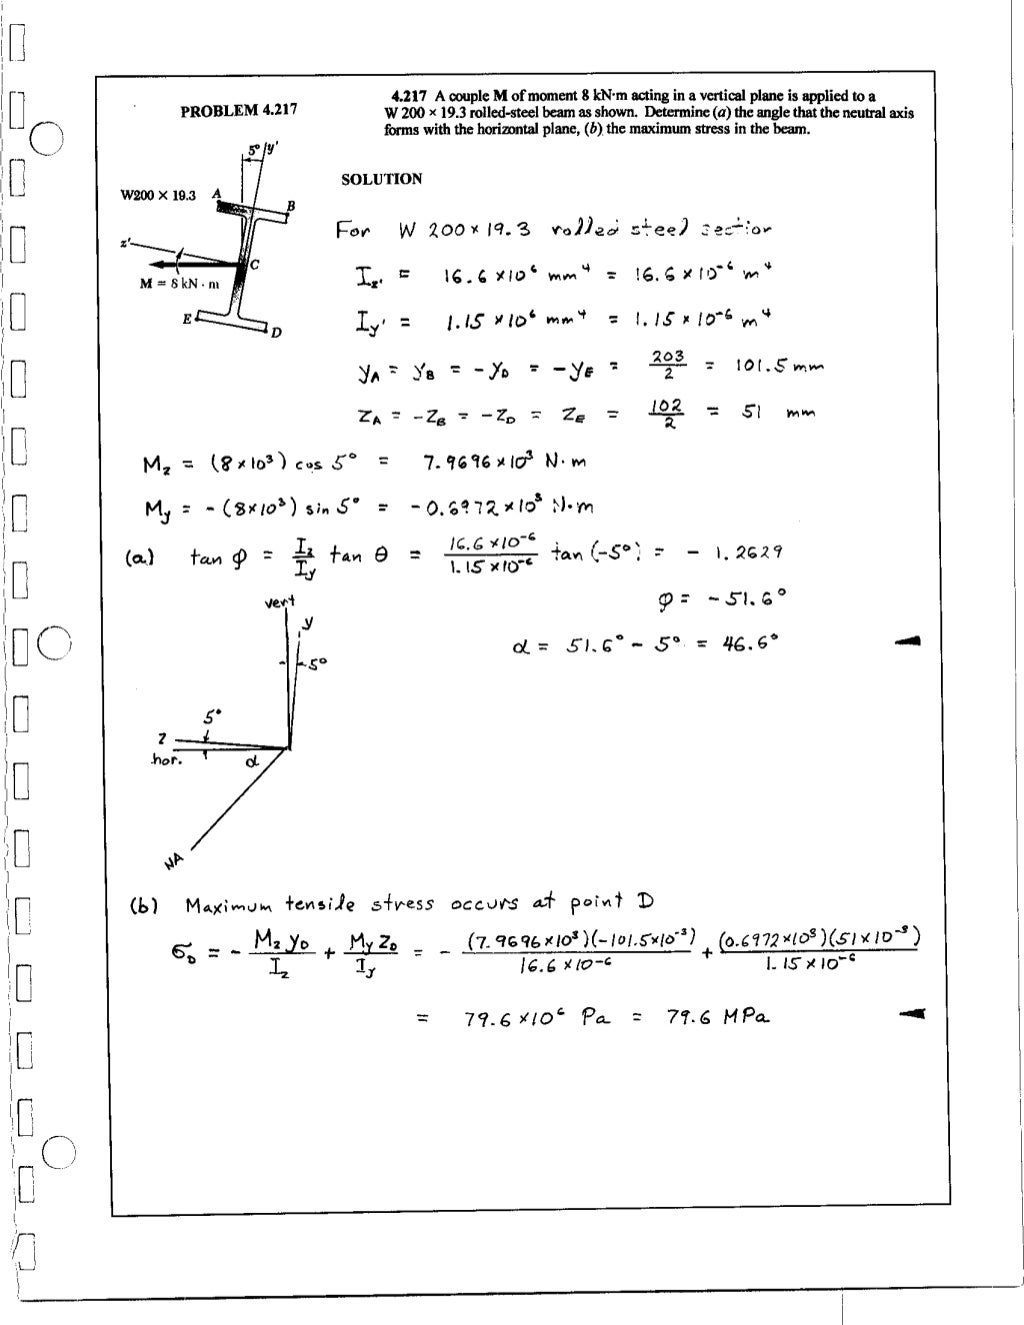 PROBLEM 4.217
4.217 A couple M of moment 8 kN·m acting in a vertical plane is applied to a
W 200 × 19.3 rolled-steel beam as shown. Determine (a) the angle that the neutral axis
forms with the horizontal plane, (b) the maximum stress in the beam.
5° y'
W200 × 19.3 A
B
z'
C
M = 8 kN · m
E
D
SOLUTION
For W 200 × 19.3 rolled steel section
I_z' = 16.6 × 10⁶ mm⁴ = 16.6 × 10⁻⁶ m⁴
I_y' = 1.15 × 10⁶ mm⁴ = 1.15 × 10⁻⁶ m⁴
y_A = y_B = -y_D = -y_E = 203/2 = 101.5 mm
z_A = -z_B = -z_D = z_E = 102/2 = 51 mm
M_z = (8 × 10³) cos 5° = 7.9696 × 10³ N·m
M_y = -(8 × 10³) sin 5° = -0.6972 × 10³ N·m
(a) tan φ = I_z/I_y tan θ = 16.6 × 10⁻⁶/1.15 × 10⁻⁶ tan (-5°) = - 1.2629
φ = - 51.6°
α = 51.6° - 5° = 46.6°
vert
y
5°
5°
z
hor.
α
NA
(b) Maximum tensile stress occurs at point D
σ_D = - M_z y_D/I_z + M_y z_D/I_y = - (7.9696 × 10³)(-101.5 × 10⁻³)/16.6 × 10⁻⁶ + (0.6972 × 10³)(51 × 10⁻³)/1.15 × 10⁻⁶
= 79.6 × 10⁶ Pa = 79.6 MPa